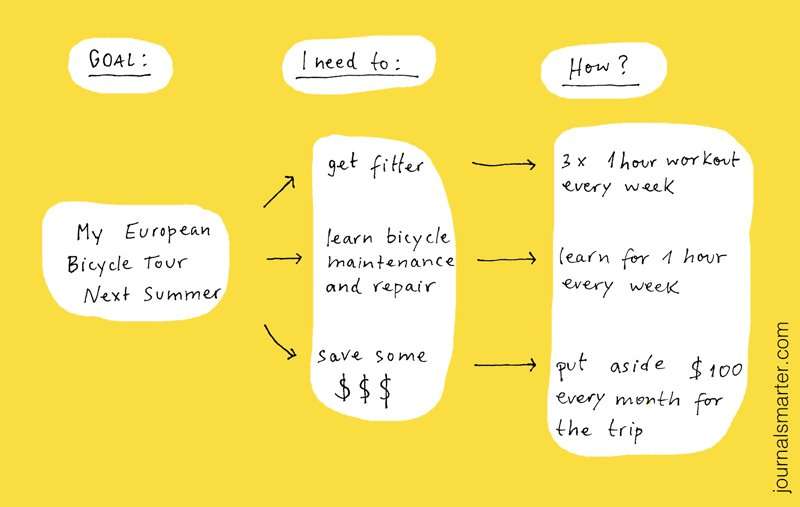 GOAL:
I need to:
How?
My European
Bicycle Tour
Next Summer
get fitter
learn bicycle
maintenance
and repair
save some
$$$
3x 1hour workout
every week
learn for 1 hour
every week
put aside $100
every month for
the trip
journalsmarter.com